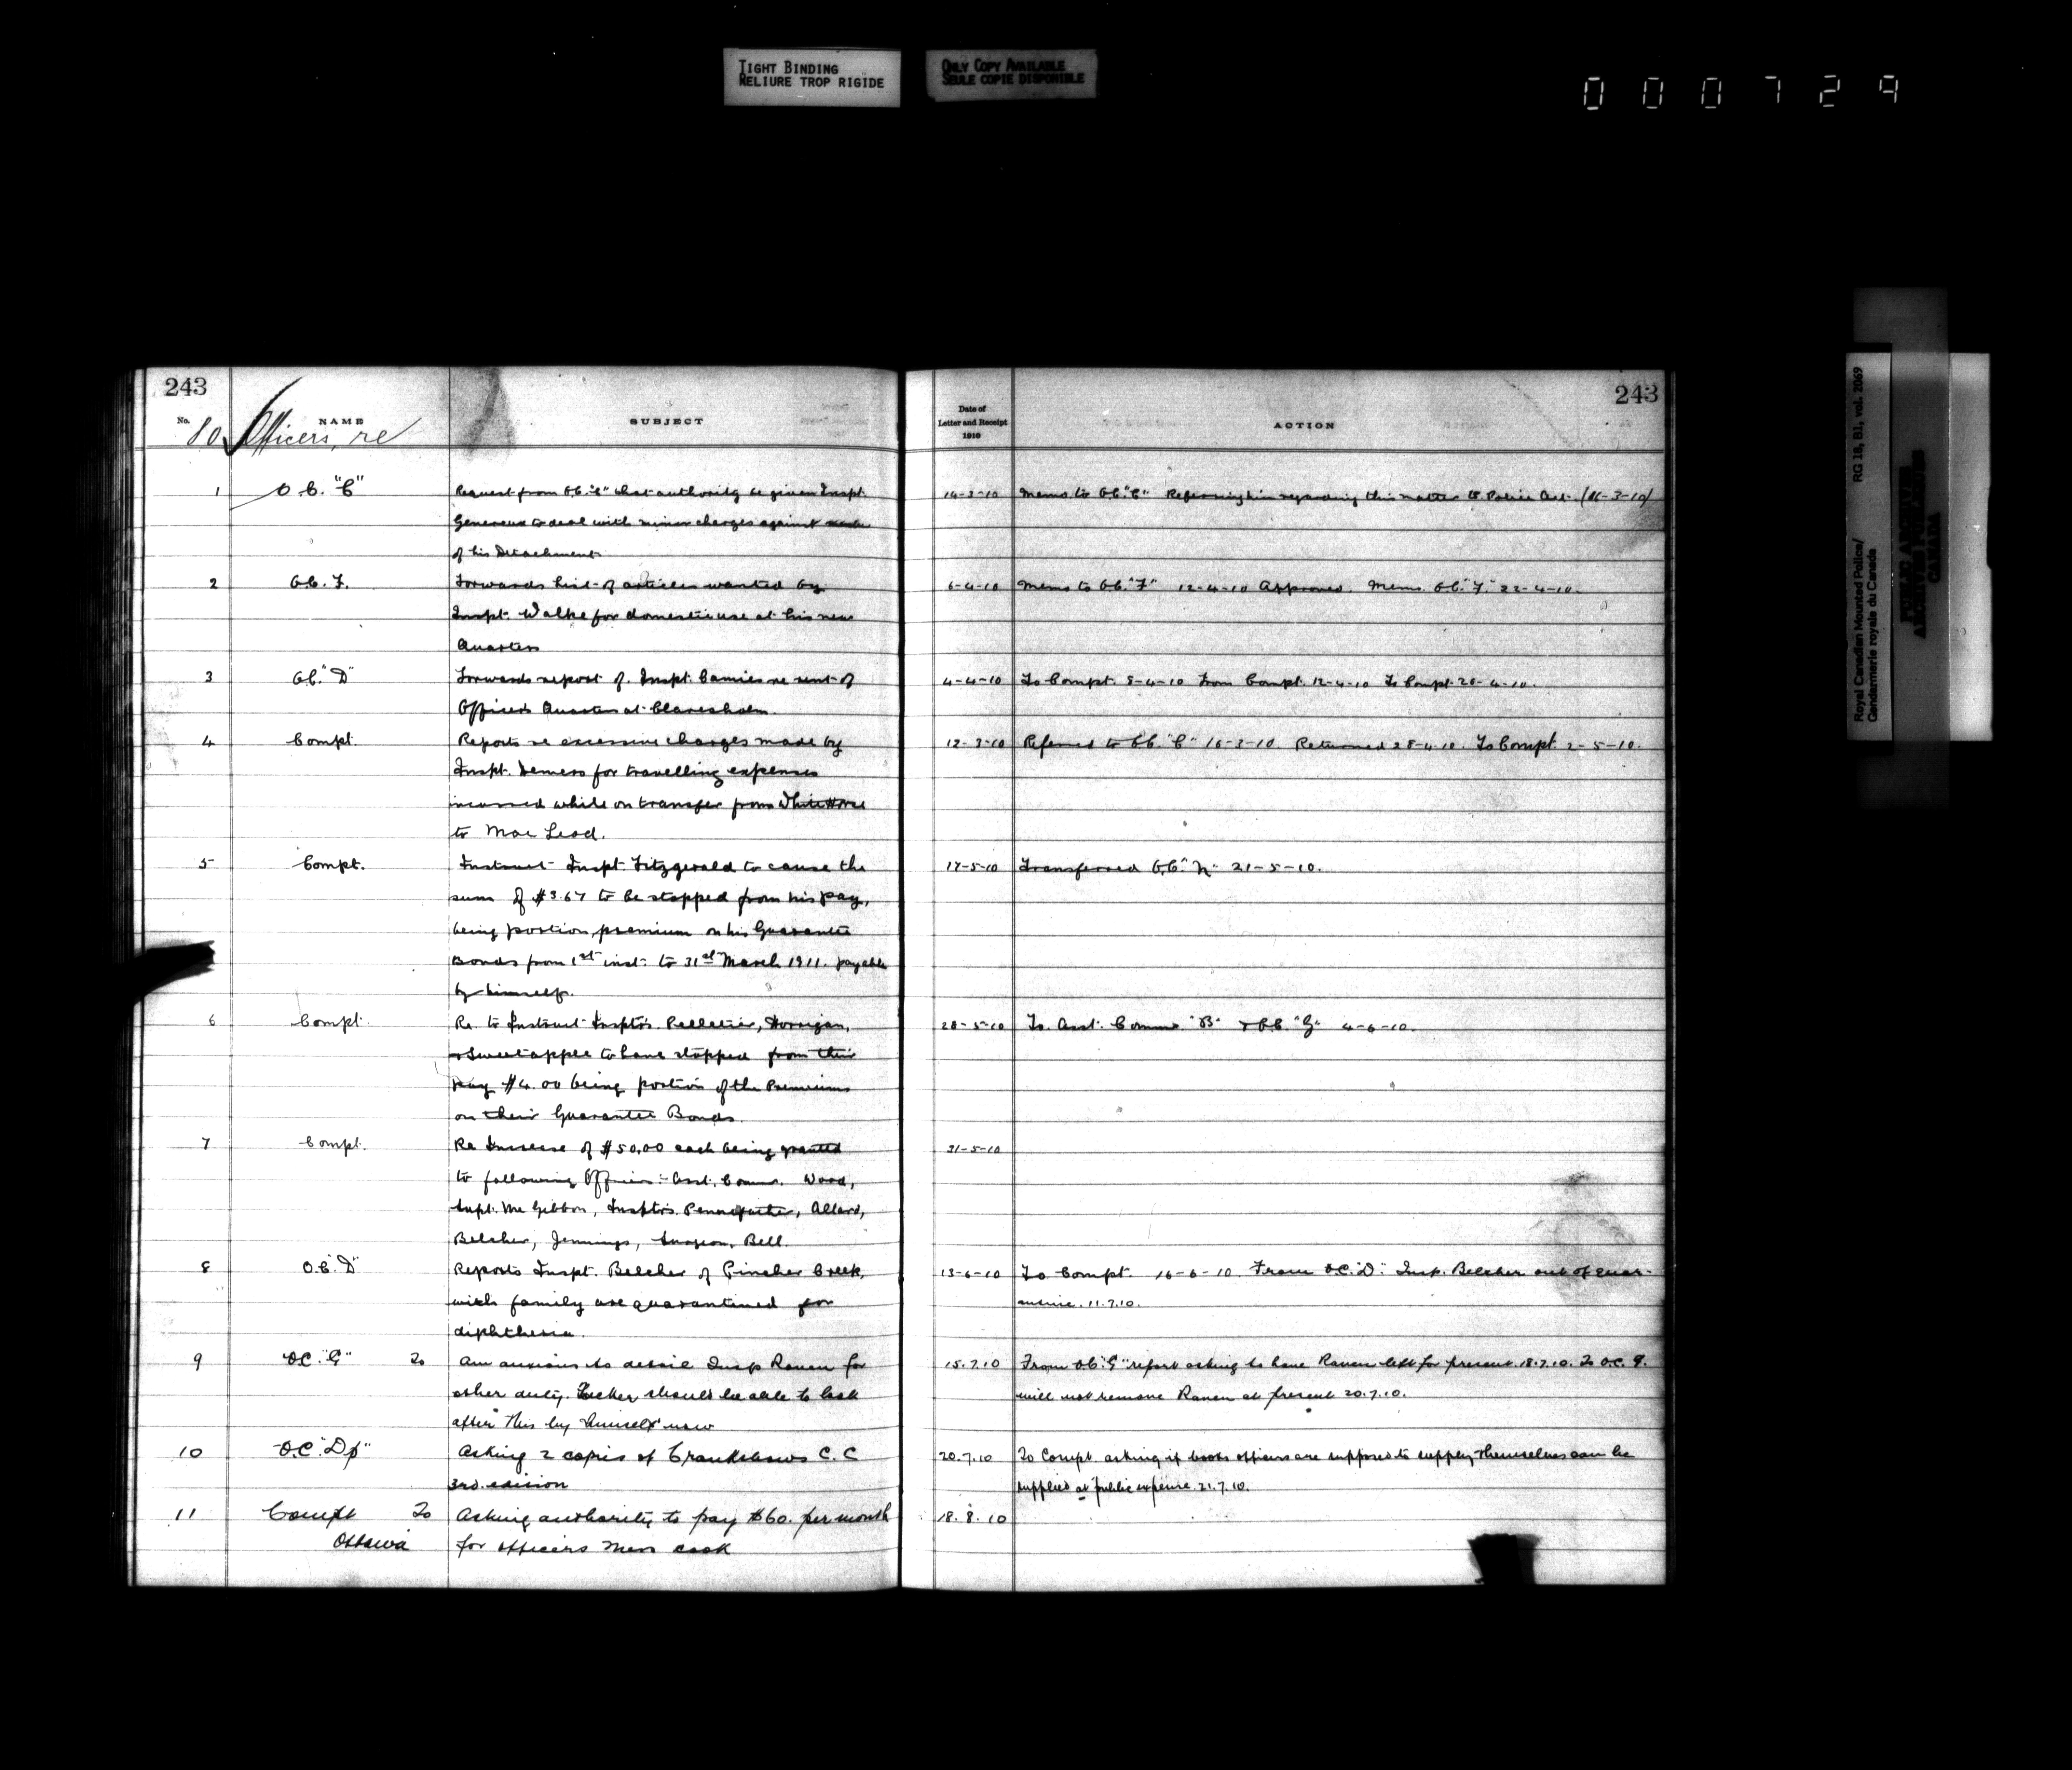 TIGHT BINDING
RELIURE TROP RIGIDE
ONLY COPY AVAILABLE
SEULE COPIE DISPONIBLE
000729
Royal Canadian Mounted Police/
Gendarmerie royale du Canada
RG 18, B1, vol. 2069
PUBLIC ARCHIVES
ARCHIVES PUBLIQUES
CANADA
243
No. NAME SUBJECT
80 Officers, re
Date of
Letter and Receipt
1910
ACTION
243
1 O.C. "C" Request from O.C. "C" that authority be given Inspt. 14-3-10 Memo to O.C. "C" Referring him regarding this matter to Police Act. (16-3-10)
Genereux to deal with minor charges against
of his Detachment
2 O.C. F. Forwards list of articles wanted by 6-4-10 Memo to O.C. "F" 12-4-10 Approved. Memo. O.C. "F." 22-4-10.
Inspt. Walke for domestic use at his new
Quarters
3 O.C. "D" Forwards report of Inspt. Camies re rent of 4-4-10 To Compt. 8-4-10 From Compt. 12-4-10 To Compt. 20-4-10.
Officers Quarters at Claresholm.
4 Compt. Reports re excessive charges made by 12-3-10 Referred to O.C. "C" 16-3-10. Returned 28-4-10. To Compt. 2-5-10.
Inspt. Demers for travelling expenses
incurred while on transfer from White Horse
to Mac Leod.
5 Compt. Instruct Inspt. Fitzgerald to cause the 17-5-10 Transferred O.C. "N" 21-5-10.
sum of $3.67 to be stopped from his pay,
being portion premium on his Guarantee
Bonds from 1st inst. to 31st March 1911. payable
by himself.
6 Compt. Re. to Instruct Insptrs. Pelletier, Horrigan, 28-5-10 To Asst. Commr "B" & O.C. "G" 4-6-10.
& Sweetapple to have stopped from their
pay $4.00 being portion of the Premiums
on their Guarantee Bonds.
7 Compt. Re Increase of $50.00 each being granted 31-5-10
to following Officers:- Asst. Commr. Wood,
Supt. Mc Gibbon, Insptrs. Pennefather, Allard,
Belcher, Jennings, Surgeon. Bell.
8 O.C. "D" Reports Inspt. Belcher of Pincher Creek, 13-6-10 To Compt. 16-6-10. From O.C. "D". Insp. Belcher out of quar-
with family are quarantined for antine. 11.7.10.
diphtheria.
9 O.C. "G" To Am anxious to detail Insp Raven for 15.7.10 From O.C. "G" report asking to have Raven left for present. 18.7.10. To O.C. G.
other duty. Tucker should be able to look will not remove Raven at present 20.7.10.
after this by himself now
10 O.C. "Dp" Asking 2 copies of Crankshaws C.C 20.7.10 To Compt. asking if books officers are supposed to supply themselves can be
3rd. edition supplied at public expense. 21.7.10.
11 Compt To Asking authority to pay $60. per month 18.8.10
Ottawa for officers mess cook